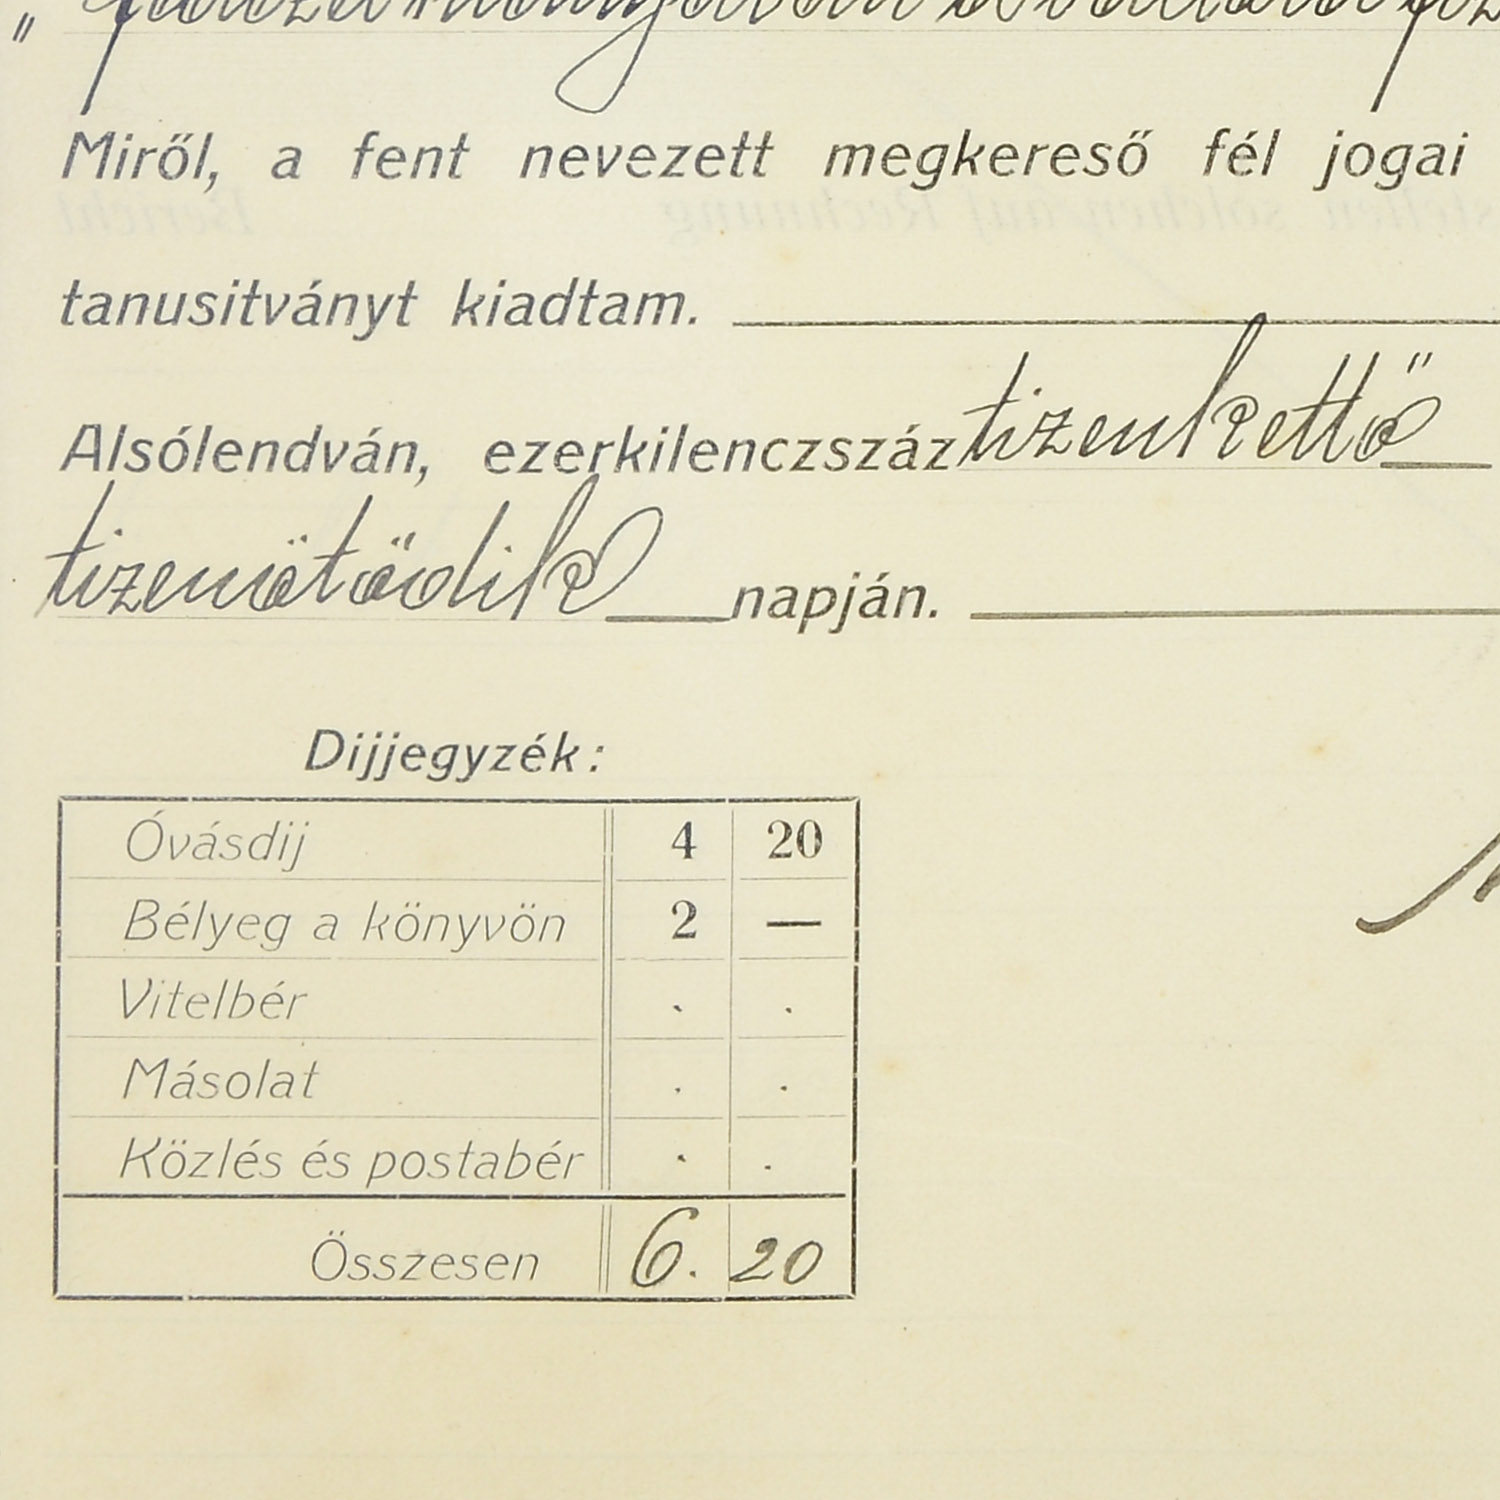 Miről, a fent nevezett megkereső fél jogai
tanusitványt kiadtam.
Alsólendván, ezerkilenczszáz tizenkettő
tizenötödik napján.
Dijjegyzék:
Óvásdij 4 20
Bélyeg a könyvön 2 —
Vitelbér . .
Másolat . .
Közlés és postabér . .
Összesen 6. 20